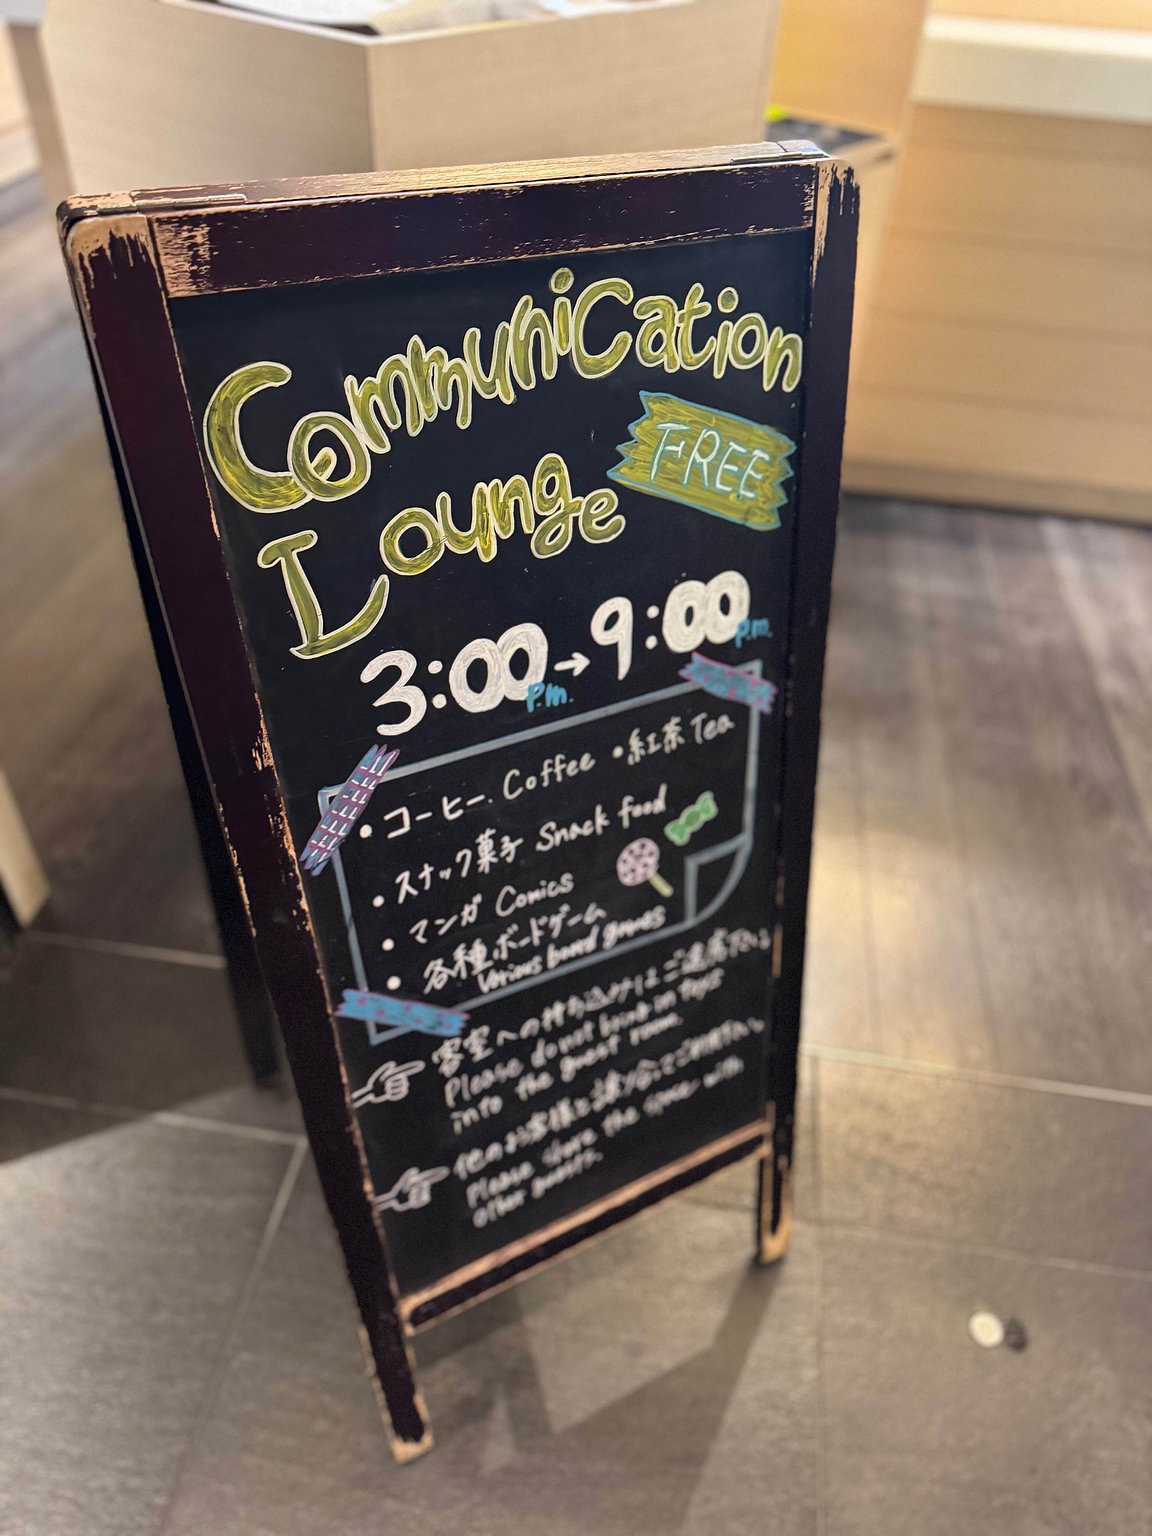 CommuniCation
Lounge
FREE
3:00 P.m. → 9:00 P.m.
• コーヒー Coffee • 紅茶 Tea
• スナック菓子 Snack food
• マンガ Comics
• 各種ボードゲーム
Various board games
客室への持ち込みはご遠慮下さい
Please do not bring in toys
into the guest room.
他のお客様と譲り合ってご利用下さい
Please share the space with
other guests.